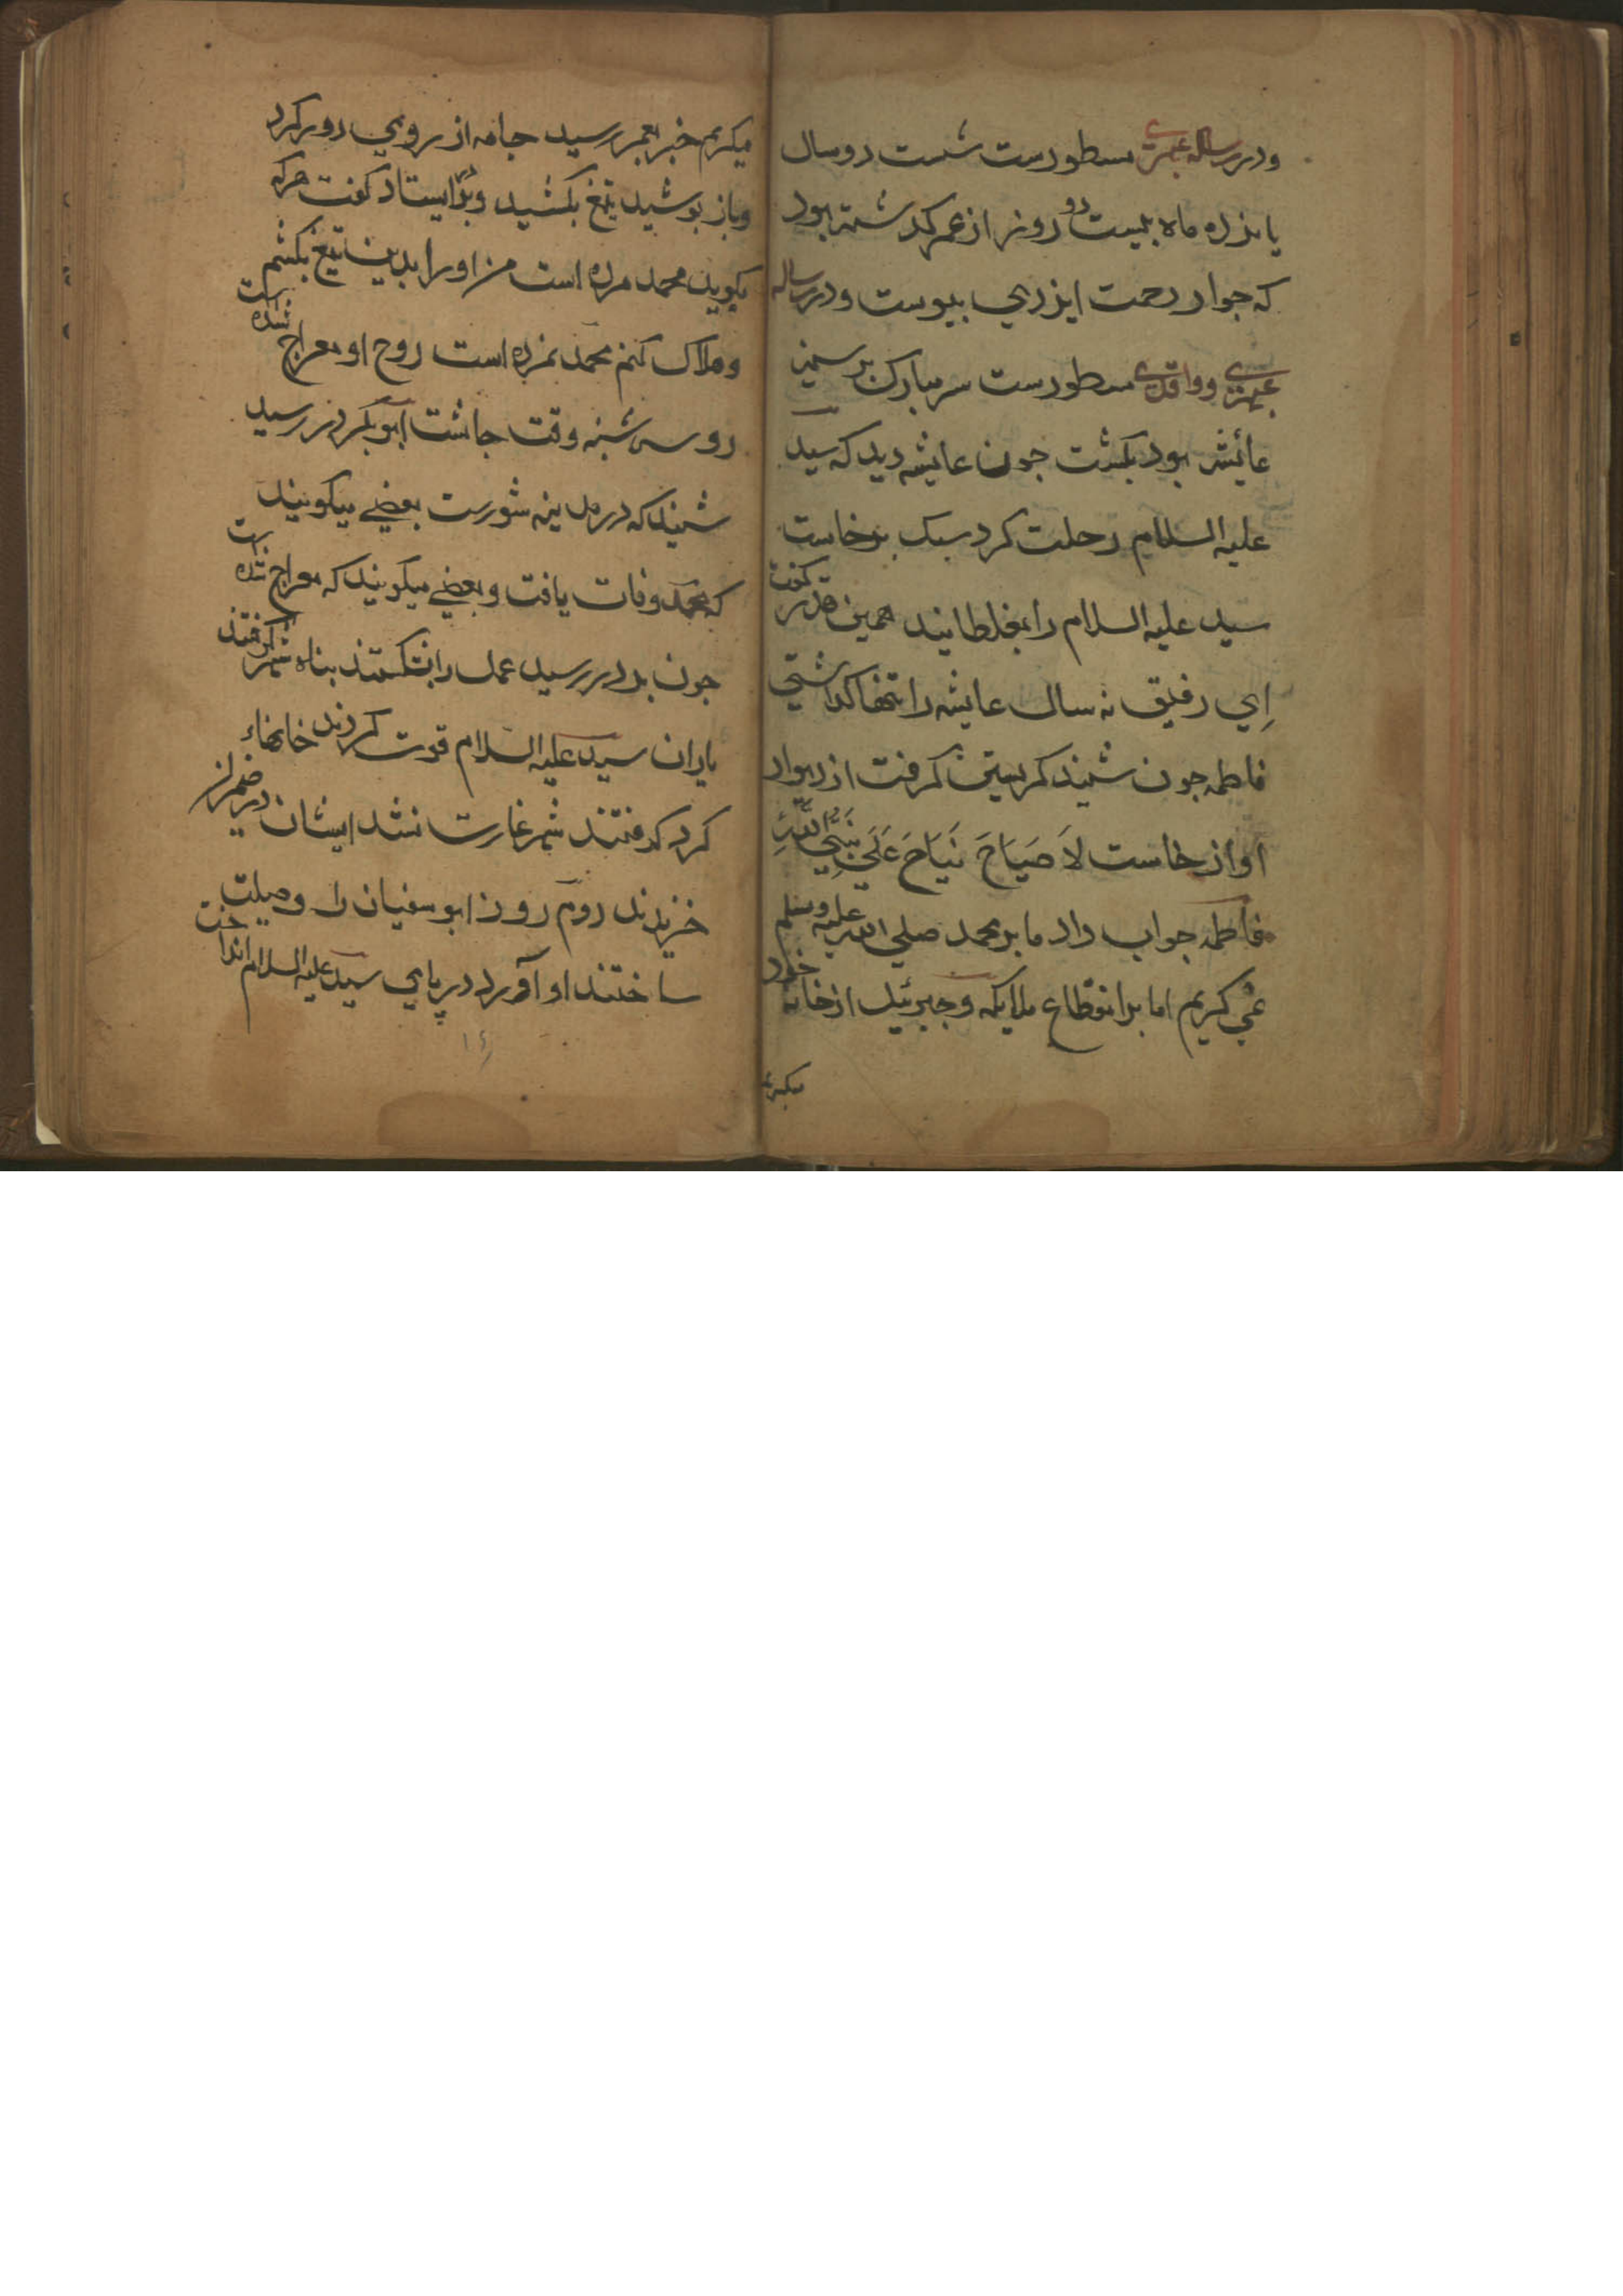 ودر رساله عبهری مسطورست شست دو سال
یازده ماه بیست دو روز از عمر کذشته بود
که جوار رحمت ایزدی بپیوست ودر رساله
عبهری وواقدی مسطورست سر مبارک بر سینه
عائشه بود بکشت جون عایشه دید که سید
علیه السلام رحلت کرد سبک برخاست
سید علیه السلام را بغلطانید همین قدر کفت
اِی رفیق نه سال عایشه را تنها کذاشتی
فاطمه جون شنید کریستن کرفت از دیوار
آواز خاست لاَ صَیَاحَ نَیَاحَ عَلَی نَبِیِّ اللّٰهِ
فاطمه جواب داد ما بر محمد صلی الله علیه وسلم
نمی کریم اما بر انقطاع ملایکه وجبرئیل از خانه خود
میکریم
میکریم خبر بعمر رسید جامه از روی دور کرد
وباز بوشید تیغ بکشید وبر در ایستاد کفت هرکه
بکوید محمد مرده است من او را بدین تیغ بکشم
وهلاک کنم محمد نمرده است روح او بمعراج شده است
روز سه شنبه وقت جاشت ابوبکر در رسید
شنید که در مدینه شورست بعضی میکویند
که محمد وفات یافت وبعضی میکویند که بمعراج شده است
جون بدر رسید عمل را بشکستند بناه شهر کرفتند
یاران سید علیه السلام قوت کردند خانهاء
کرد کرفتند شهر غارت نشد ایشان در
خزیدند دوم روز ابوسفیان را وصیلت
ساختند او آورد در پای سید علیه السلام انداخت
۱۶